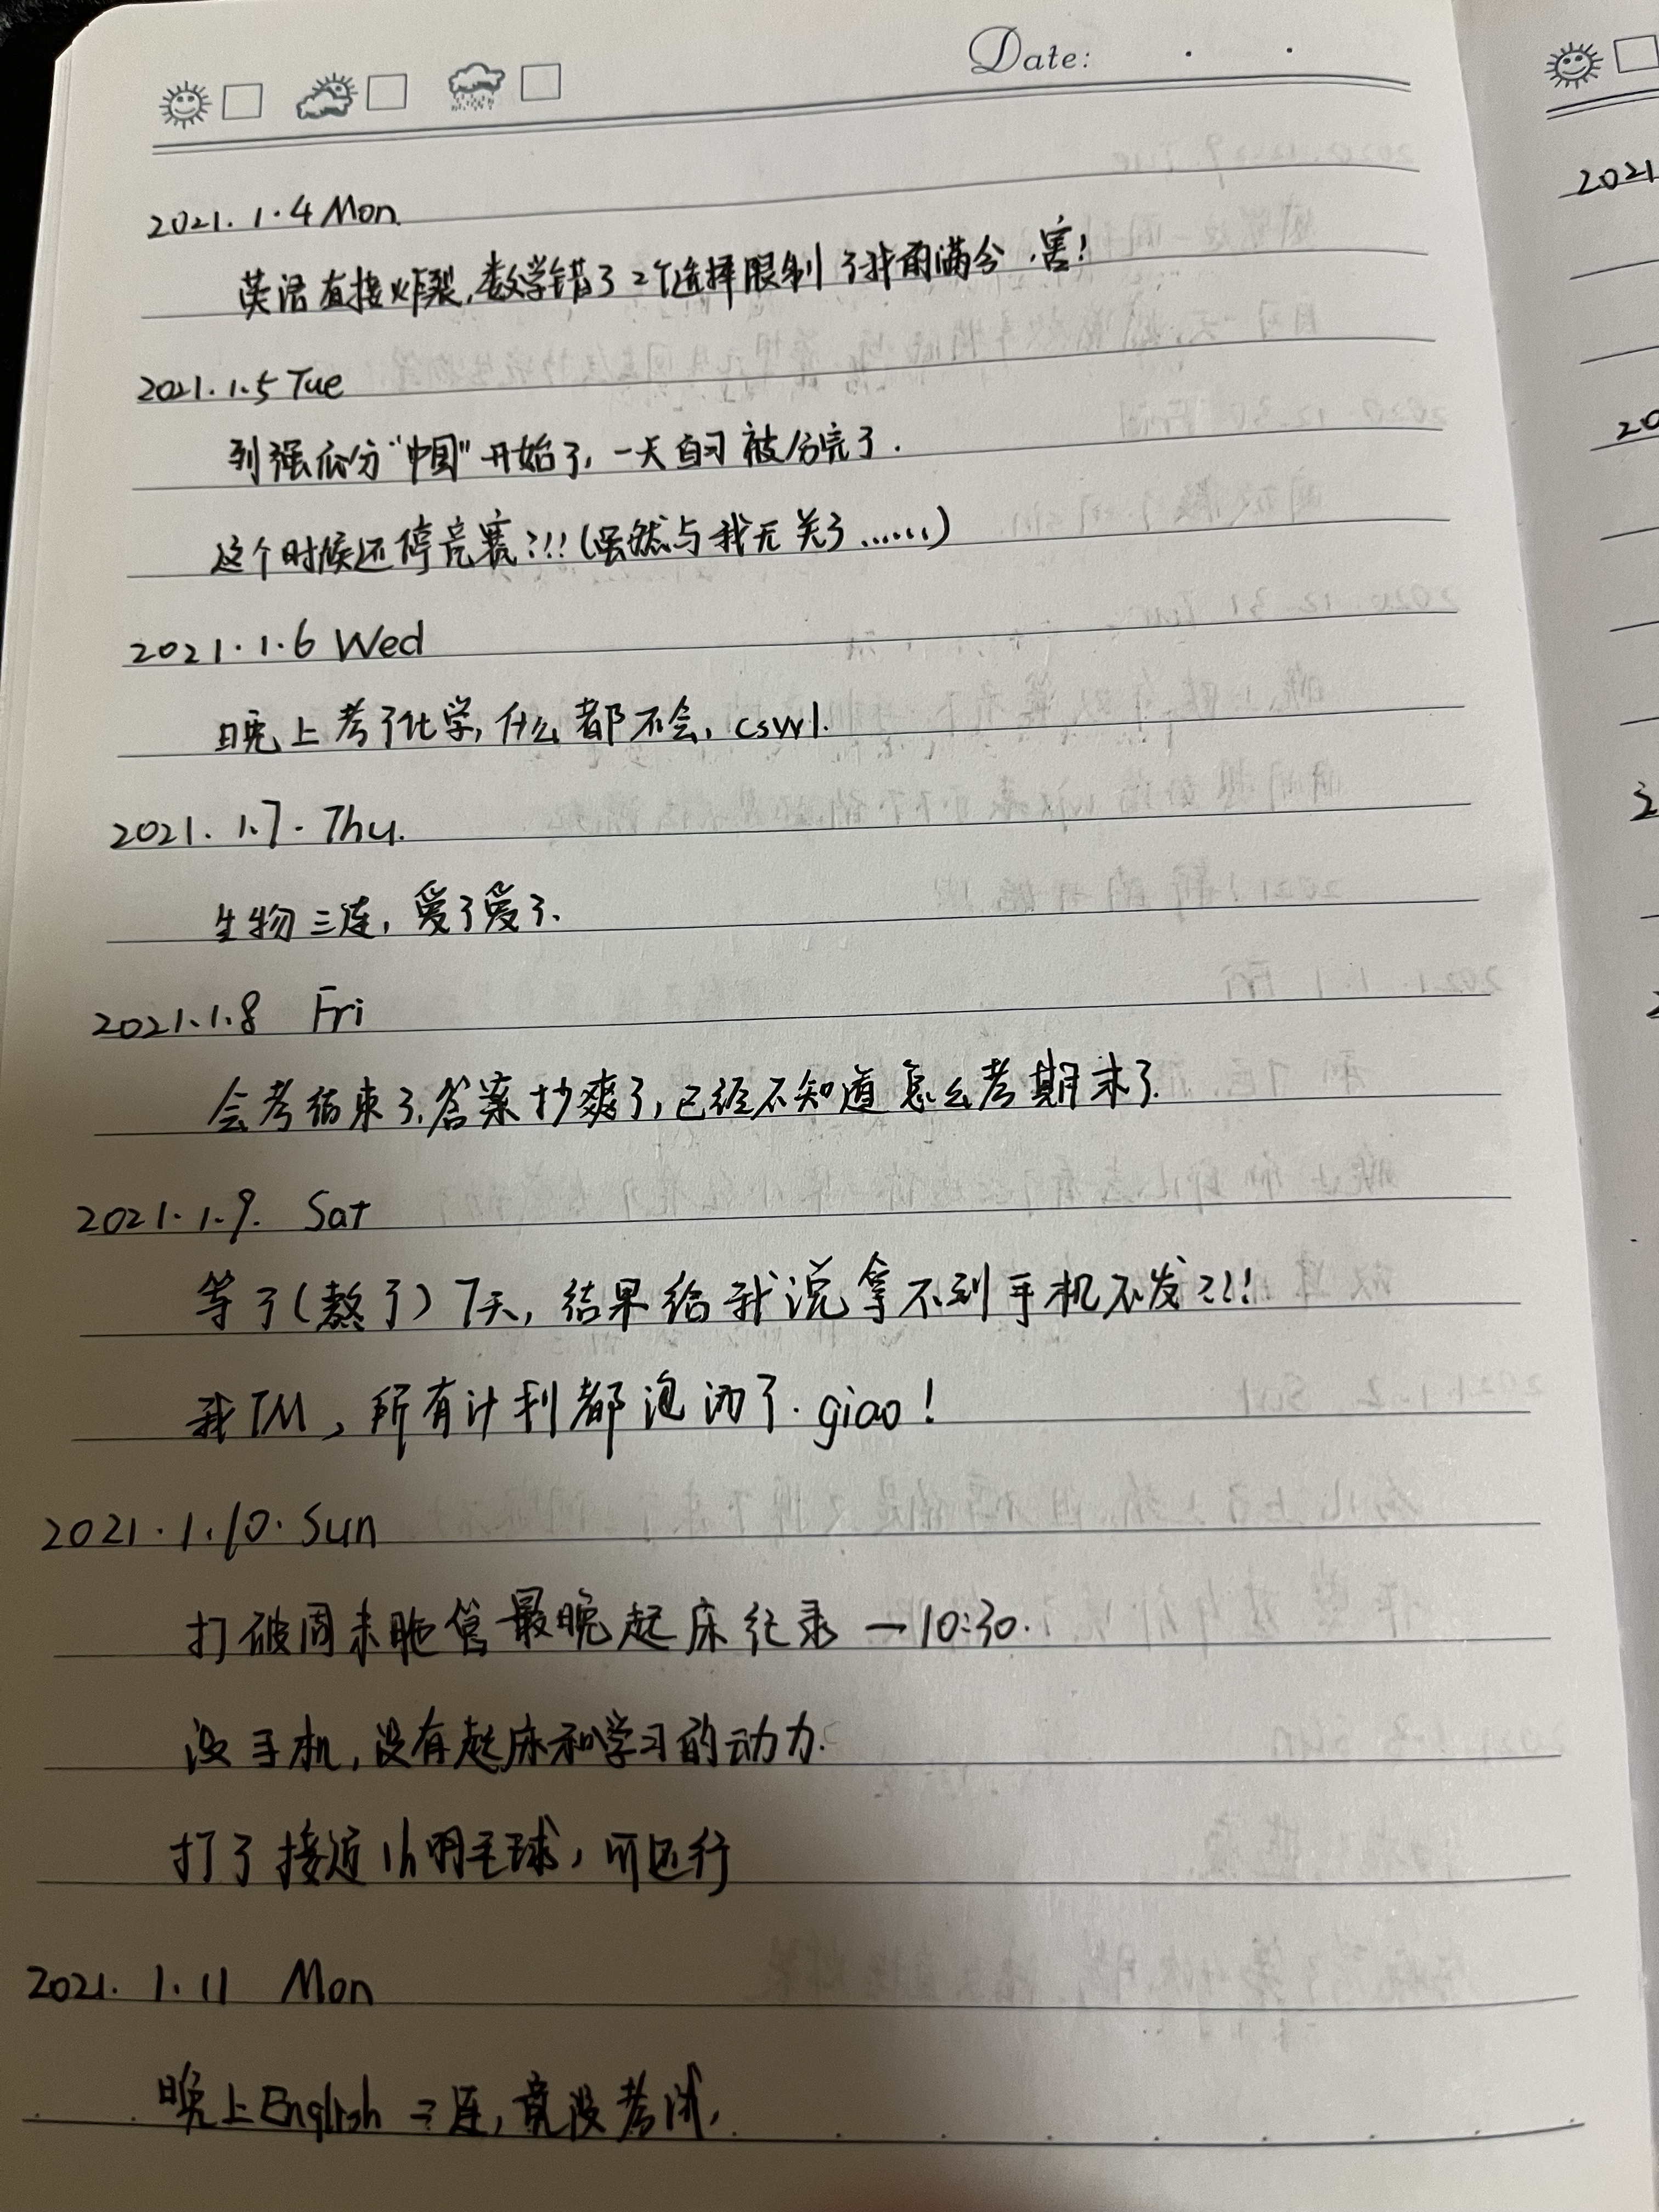 Date: . .
2021.1.4 Mon.
英语直接炸裂,数学错了2个选择限制了我的满分.害!
2021.1.5 Tue
列强瓜分"中国"开始了,一天自习被分完了.
这个时候还停竞赛?!!(虽然与我无关了……)
2021.1.6 Wed
晚上考了化学,什么都不会,cswl.
2021.1.7.Thu.
生物三连,爱了爱了.
2021.1.8 Fri
会考结束了.答案抄爽了,已经不知道怎么考期末了.
2021.1.9. Sat
等了(熬了)7天,结果给我说拿不到手机不发?!!
我TM,所有计划都泡汤了.giao!
2021.1.10.Sun
打破周末最晚起床纪录—10:30.
没手机,没有起床和学习的动力.
打了接近1h羽毛球,可还行
2021.1.11 Mon
晚上English三连,竟没考试,
2021
20